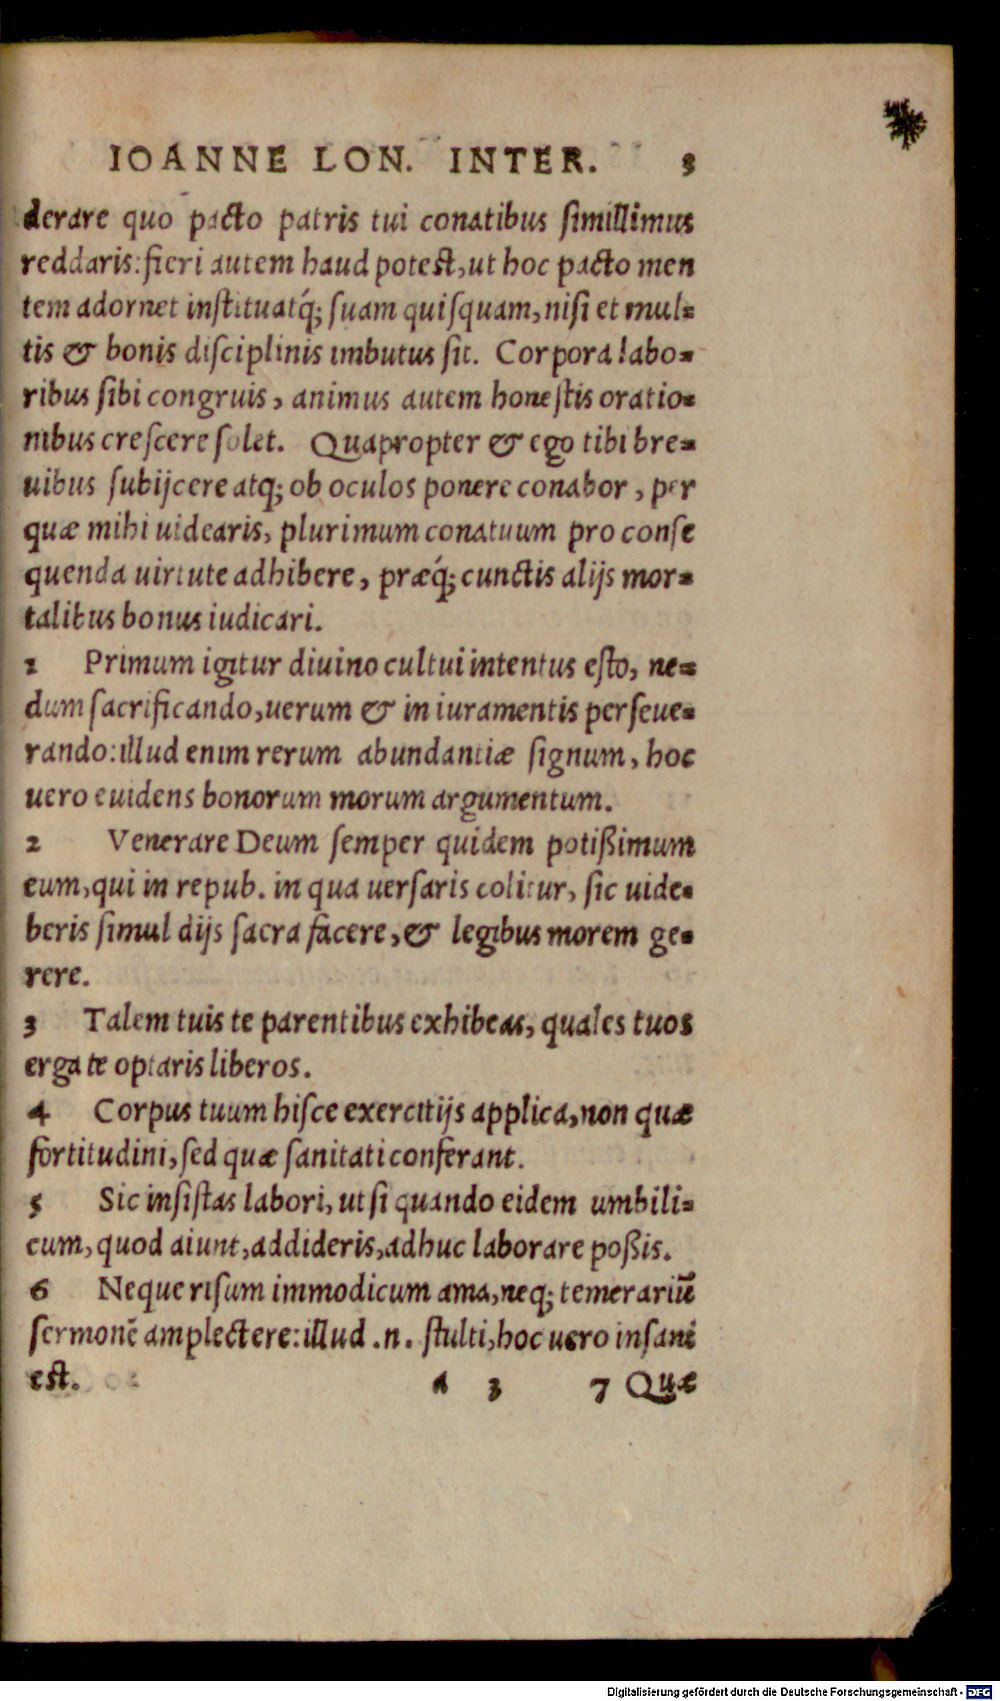 IOANNE LON. INTER. 3
derare quo pacto patris tui conatibus simillimus
reddaris: fieri autem haud potest, ut hoc pacto men
tem adornet instituatq́; suam quisquam, nisi et mul-
tis & bonis disciplinis imbutus sit. Corpora labo-
ribus sibi congruis, animus autem honestis oratio-
nibus crescere solet. Quapropter & ego tibi bre-
uibus subijcere atq; ob oculos ponere conabor, per
quæ mihi uidearis, plurimum conatuum pro conse
quenda uirtute adhibere, præq́; cunctis alijs mor-
talibus bonus iudicari.
1 Primum igitur diuino cultui intentus esto, ne-
dum sacrificando, uerum & in iuramentis perseue-
rando: illud enim rerum abundantiæ signum, hoc
uero euidens bonorum morum argumentum.
2 Venerare Deum semper quidem potißimum
eum, qui in repub. in qua uersaris colitur, sic uide-
beris simul dijs sacra facere, & legibus morem ge-
rere.
3 Talem tuis te parentibus exhibeas, quales tuos
erga te optaris liberos.
4 Corpus tuum hisce exercitijs applica, non quæ
fortitudini, sed quæ sanitati conferant.
5 Sic insistas labori, ut si quando eidem umbili-
cum, quod aiunt, addideris, adhuc laborare poßis.
6 Neque risum immodicum ama, neq; temerariũ
sermonẽ amplectere: illud .n. stulti, hoc uero insani
est. A 3 7 Quæ
Digitalisierung gefördert durch die Deutsche Forschungsgemeinschaft - DFG